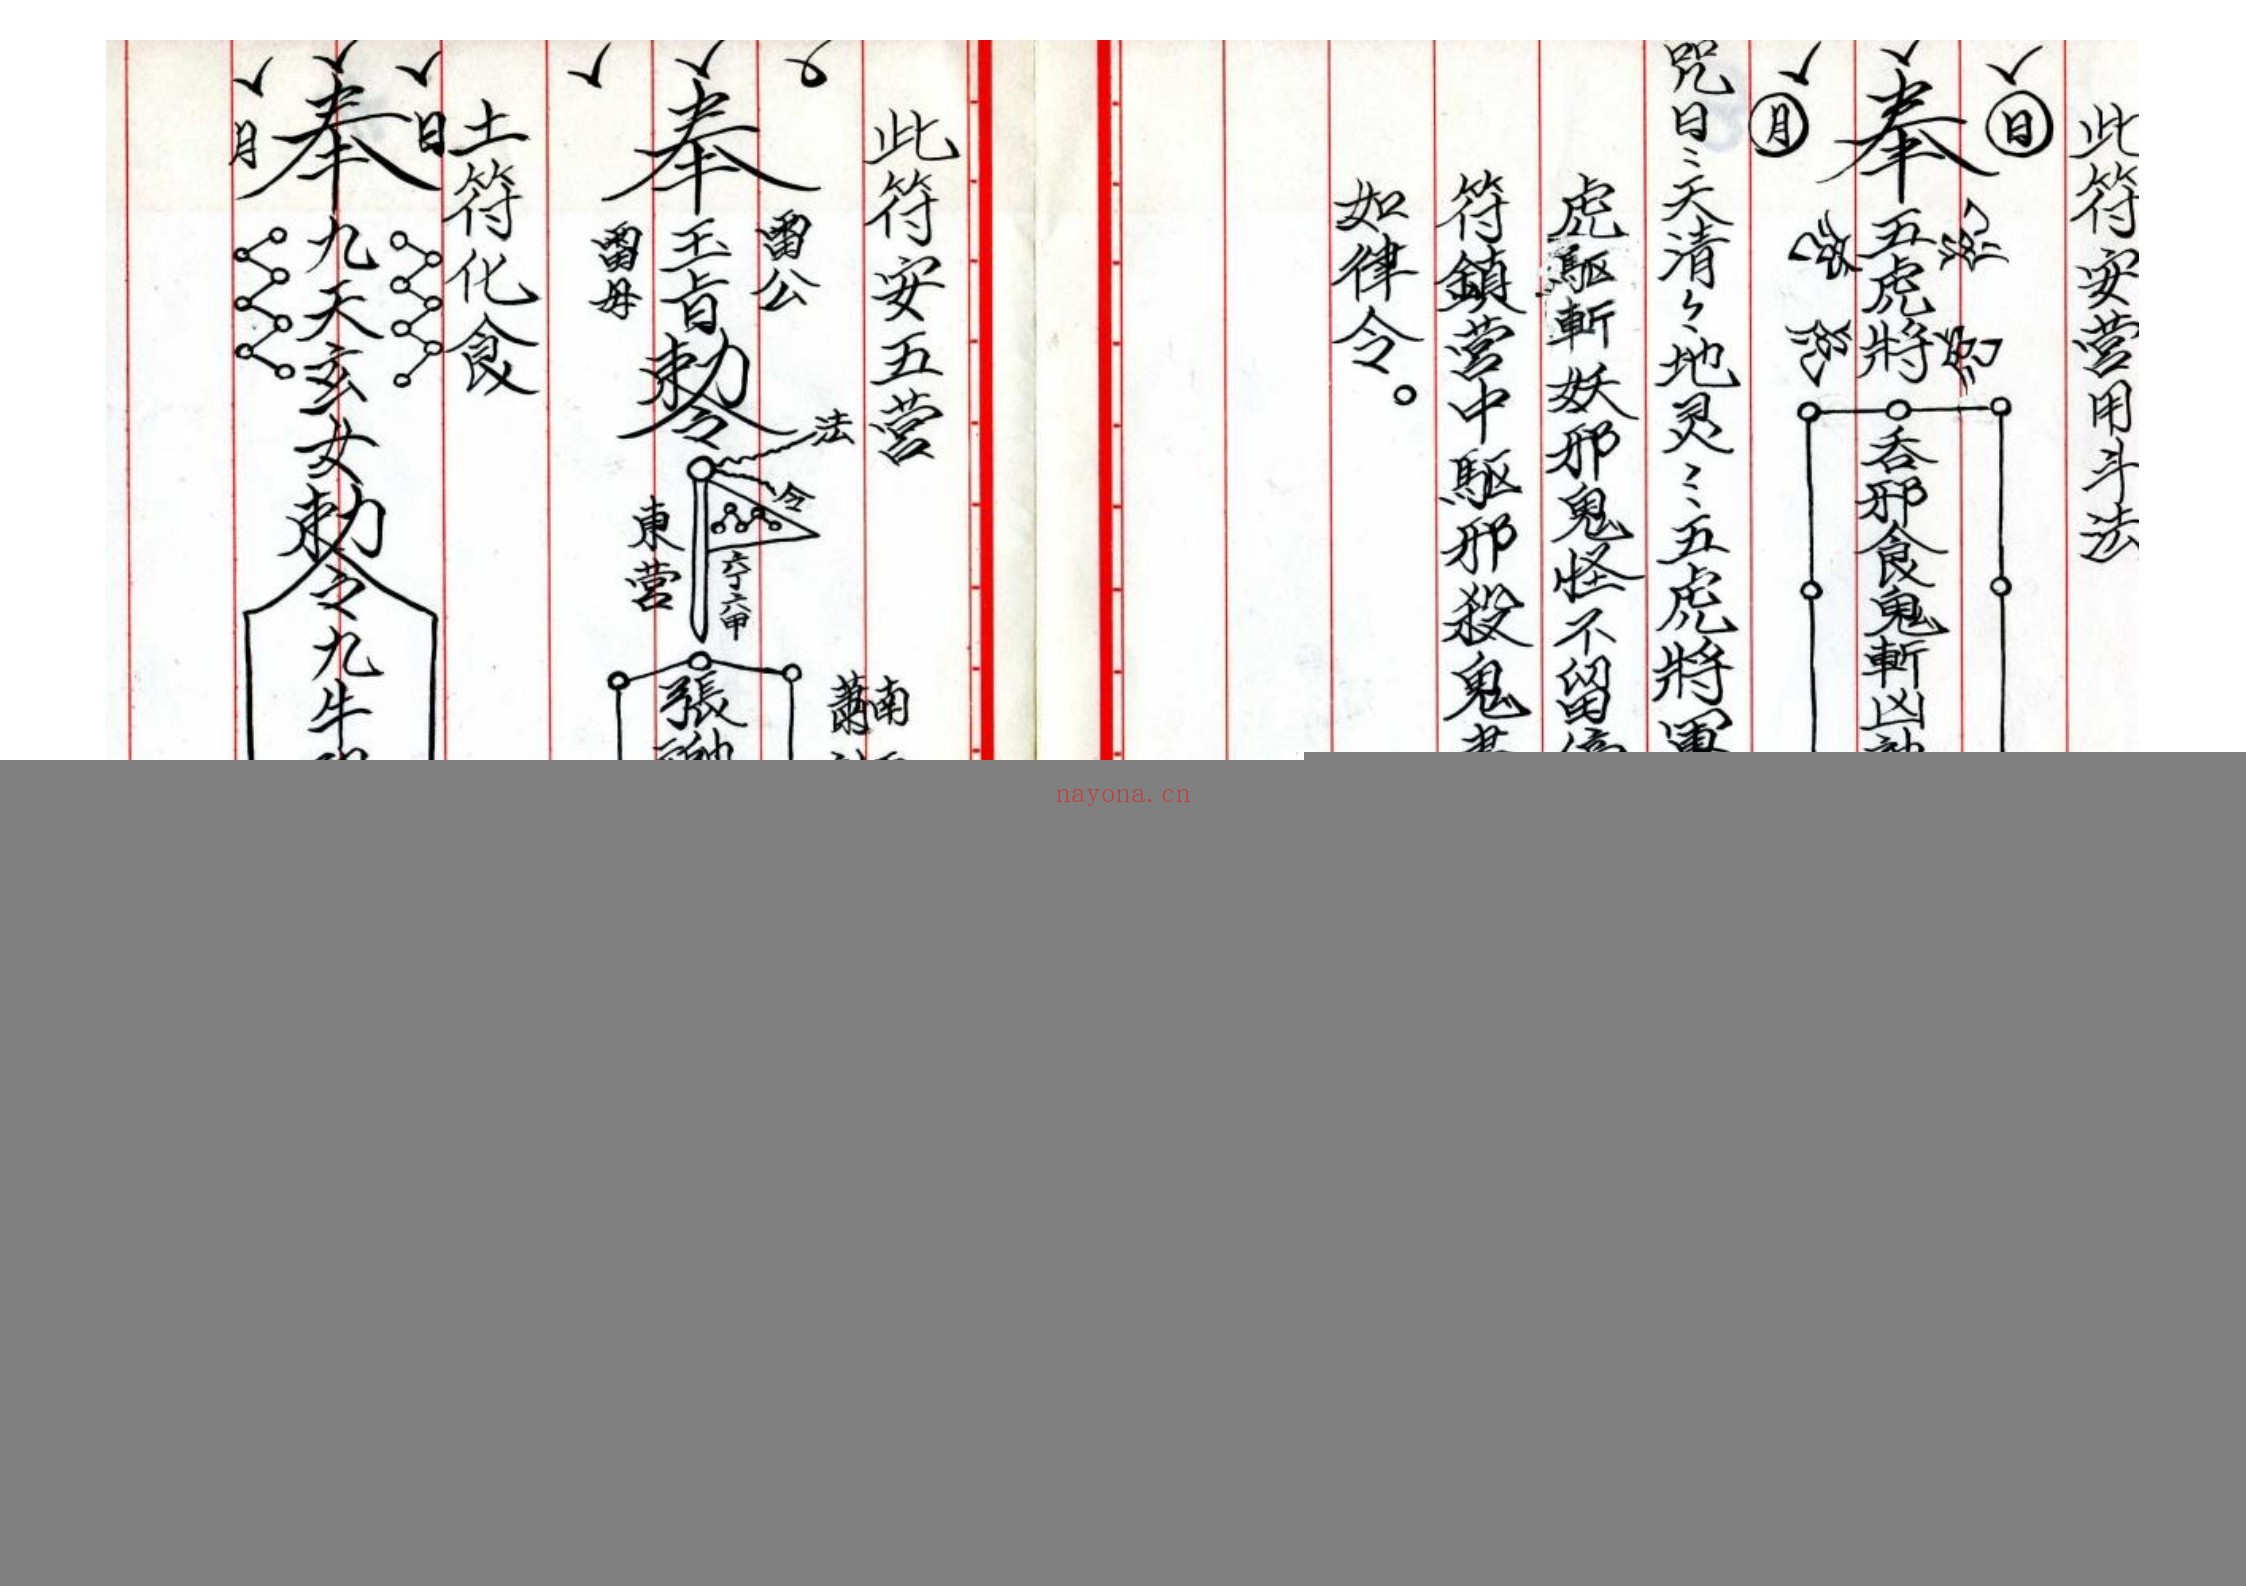 此符安营用斗法
日
奉五虎將
月
吞邪食鬼斬凶
咒曰〻天清〻地灵〻五虎將軍
虎驅斬妖邪鬼怪不留停
符鎮营中驅邪殺鬼
如律令。
此符安五营
雷公
奉玉旨勅令
雷母
法
令
六丁六甲
東营
南
蕭
張
土符化食
日
奉九天玄女勅令九牛
月
nayona.cn